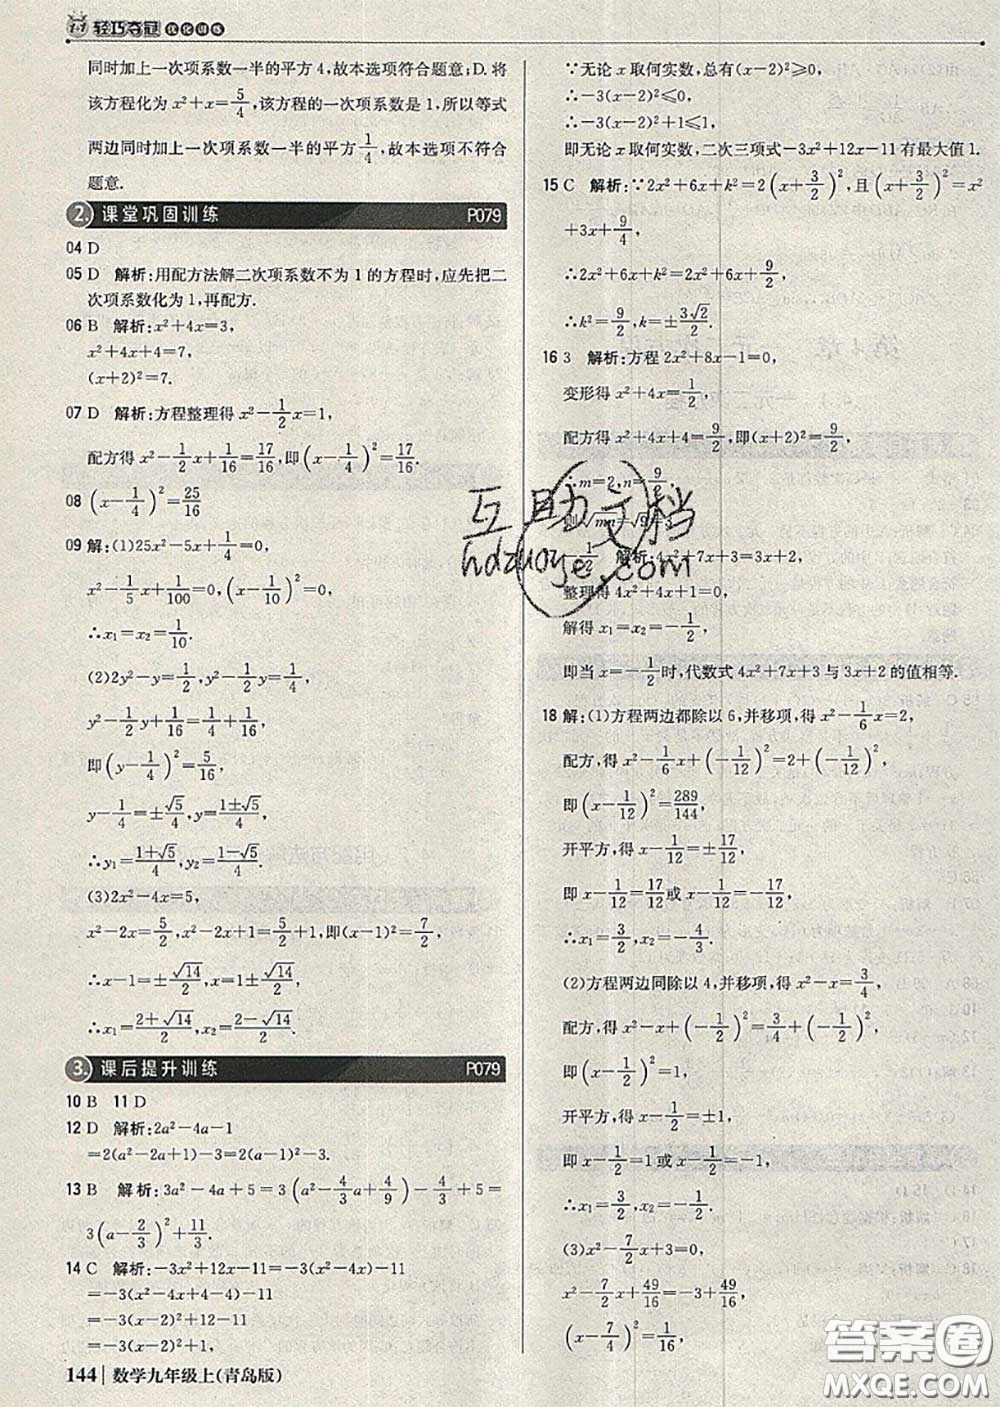 1+1 轻巧夺冠 优化训练
同时加上一次项系数一半的平方4,故本选项符合题意;D. 将
该方程化为 x²+x=5/4,该方程的一次项系数是1,所以等式
两边同时加上一次项系数一半的平方 1/4,故本选项不符合
题意.
2. 课堂巩固训练 P079
04 D
05 D 解析:用配方法解二次项系数不为1的方程时,应先把二
次项系数化为1,再配方.
06 B 解析:x²+4x=3,
x²+4x+4=7,
(x+2)²=7.
07 D 解析:方程整理得 x²-1/2x=1,
配方得 x²-1/2x+1/16=17/16,即(x-1/4)²=17/16.
08 (x-1/4)²=25/16
09 解:(1)25x²-5x+1/4=0,
x²-1/5x+1/100=0,(x-1/10)²=0,
∴x₁=x₂=1/10.
(2)2y²-y=1/2,y²-1/2y=1/4,
y²-1/2y+1/16=1/4+1/16,
即(y-1/4)²=5/16,
y-1/4=±√5/4,y=(1±√5)/4,
∴y₁=(1+√5)/4,y₂=(1-√5)/4.
(3)2x²-4x=5,
x²-2x=5/2,x²-2x+1=5/2+1,即(x-1)²=7/2,
∴x-1=±√14/2,
∴x₁=(2+√14)/2,x₂=(2-√14)/2.
3. 课后提升训练 P079
10 B 11 D
12 D 解析:2a²-4a-1
=2(a²-2a+1)-3=2(a-1)²-3.
13 B 解析:3a²-4a+5=3(a²-4/3a+4/9)-4/3+5=
3(a-2/3)²+11/3.
14 C 解析:-3x²+12x-11=-3(x²-4x)-11
=-3(x-2)²+12-11
=-3(x-2)²+1.
144 数学九年级上(青岛版)
∵无论x取何实数,总有(x-2)²≥0,
∴-3(x-2)²≤0,
∴-3(x-2)²+1≤1,
即无论x取何实数,二次三项式-3x²+12x-11有最大值1.
15 C 解析:∵2x²+6x+k²=2(x+3/2)²,且(x+3/2)²=x²
+3x+9/4,
∴2x²+6x+k²=2x²+6x+9/2,
∴k²=9/2,k=±3√2/2.
16 3 解析:方程2x²+8x-1=0,
变形得 x²+4x=1/2,
配方得 x²+4x+4=9/2,即(x+2)²=9/2,
∴m=2,n=9/2,
则√mn=√9=3.
-1/2 解析:4x²+7x+3=3x+2,
整理得4x²+4x+1=0,
解得 x₁=x₂=-1/2,
即当 x=-1/2时,代数式4x²+7x+3与3x+2的值相等.
18 解:(1)方程两边都除以6,并移项,得 x²-1/6x=2,
配方,得 x²-1/6x+(-1/12)²=2+(-1/12)²,
即(x-1/12)²=289/144,
开平方,得 x-1/12=±17/12,
即 x-1/12=17/12或 x-1/12=-17/12,
∴x₁=3/2,x₂=-4/3.
(2)方程两边同除以4,并移项,得 x²-x=3/4,
配方,得 x²-x+(-1/2)²=3/4+(-1/2)²,
即(x-1/2)²=1,
开平方,得 x-1/2=±1,
即 x-1/2=1或 x-1/2=-1,
∴x₁=3/2,x₂=-1/2.
(3)x²-7/2x+3=0,
x²-7/2x+49/16=-3+49/16,
(x-7/4)²=1/16,
互助文档
hdzuoye.com
答案圈
MXQE.COM